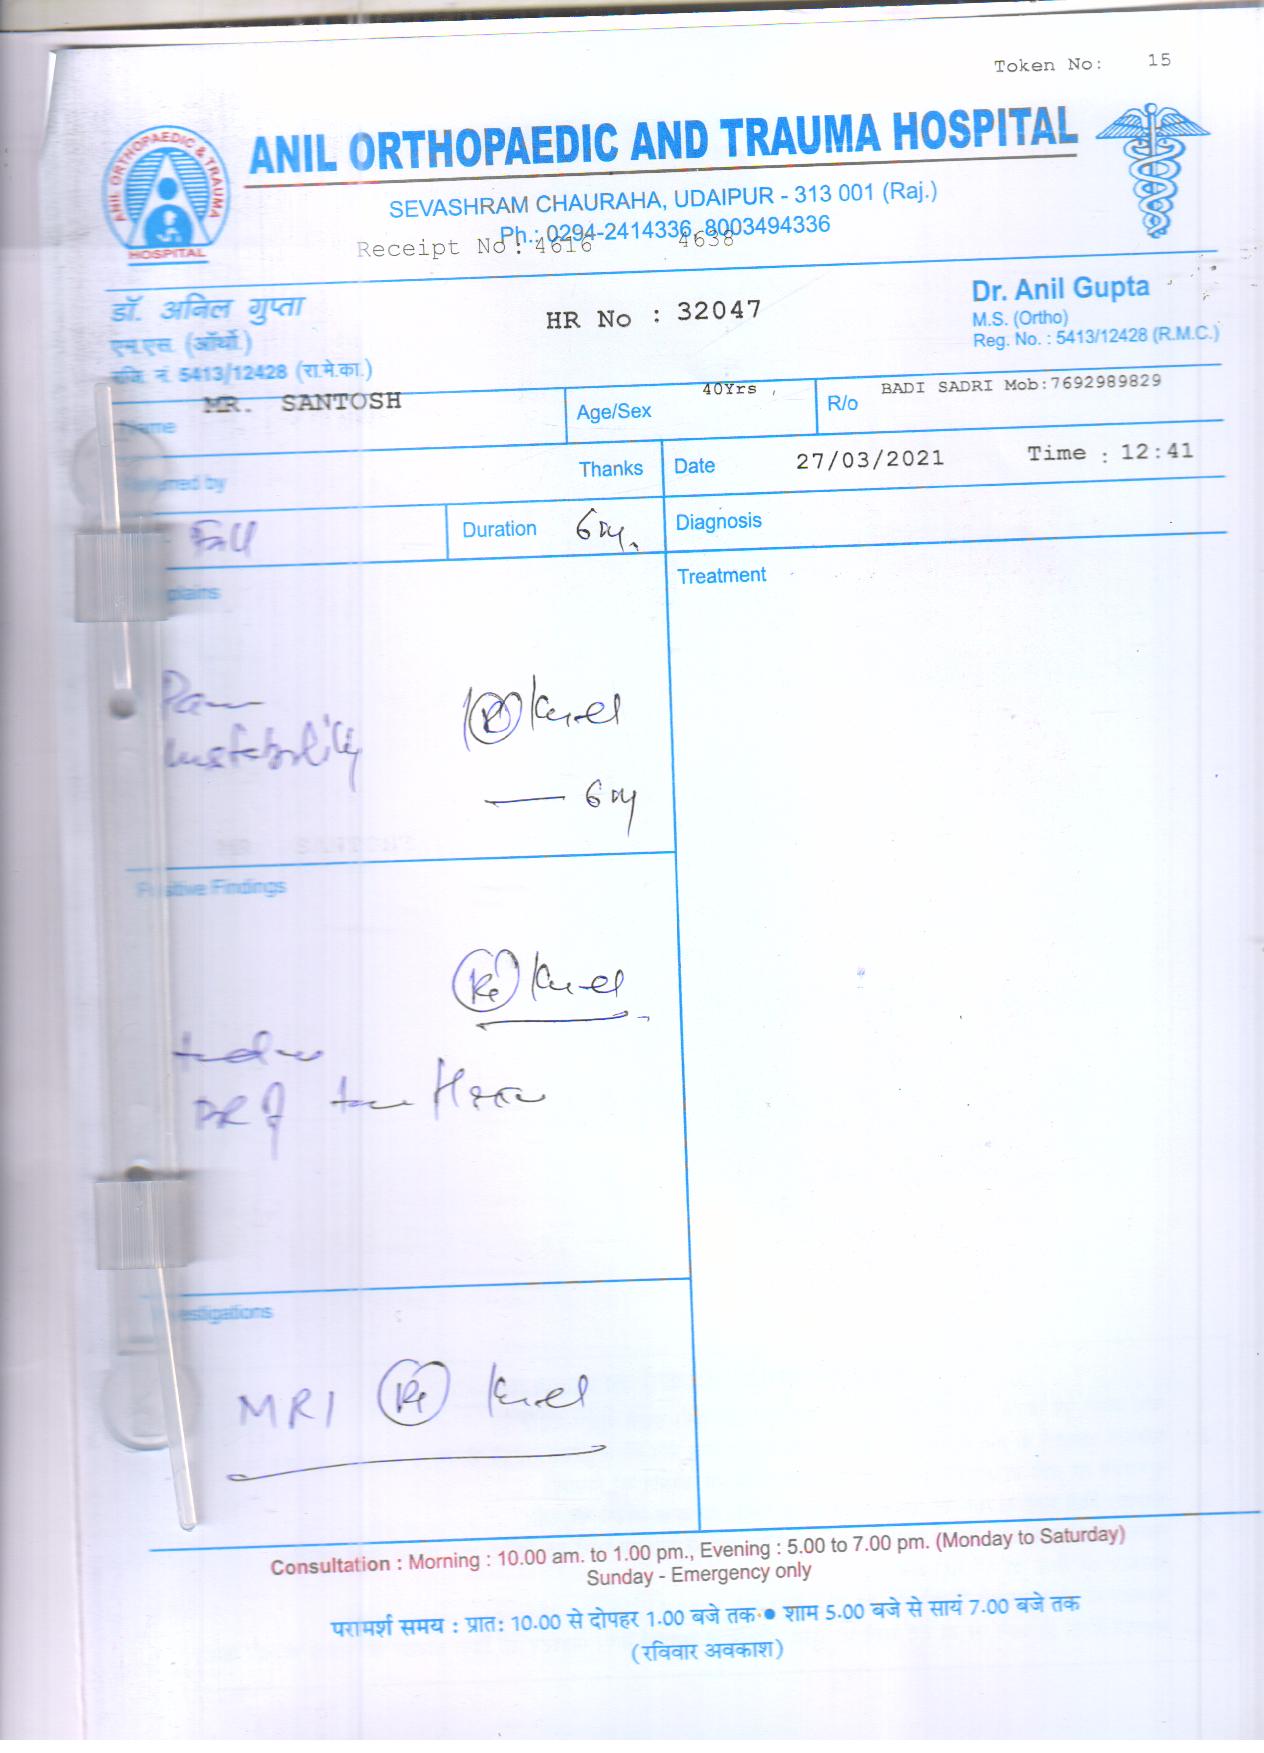 Token No: 15
ANIL ORTHOPAEDIC AND TRAUMA HOSPITAL
ANIL ORTHOPAEDIC & TRAUMA HOSPITAL
SEVASHRAM CHAURAHA, UDAIPUR - 313 001 (Raj.)
Ph.: 0294-2414336, 8003494336
Receipt No : 4616 4638
डॉ. अनिल गुप्ता
एम.एस. (ऑर्थो.)
रजि. नं. 5413/12428 (रा.मे.का.)
HR No : 32047
Dr. Anil Gupta
M.S. (Ortho)
Reg. No. : 5413/12428 (R.M.C.)
MR. SANTOSH
Age/Sex 40Yrs ,
R/o BADI SADRI Mob:7692989829
Thanks
Date 27/03/2021 Time : 12:41
Fall
Duration
Diagnosis
Treatment
Pain
Instability
Knee
Positive Findings
Knee
MRI Knee
Consultation : Morning : 10.00 am. to 1.00 pm., Evening : 5.00 to 7.00 pm. (Monday to Saturday)
Sunday - Emergency only
परामर्श समय : प्रात: 10.00 से दोपहर 1.00 बजे तक • शाम 5.00 बजे से सायं 7.00 बजे तक
(रविवार अवकाश)